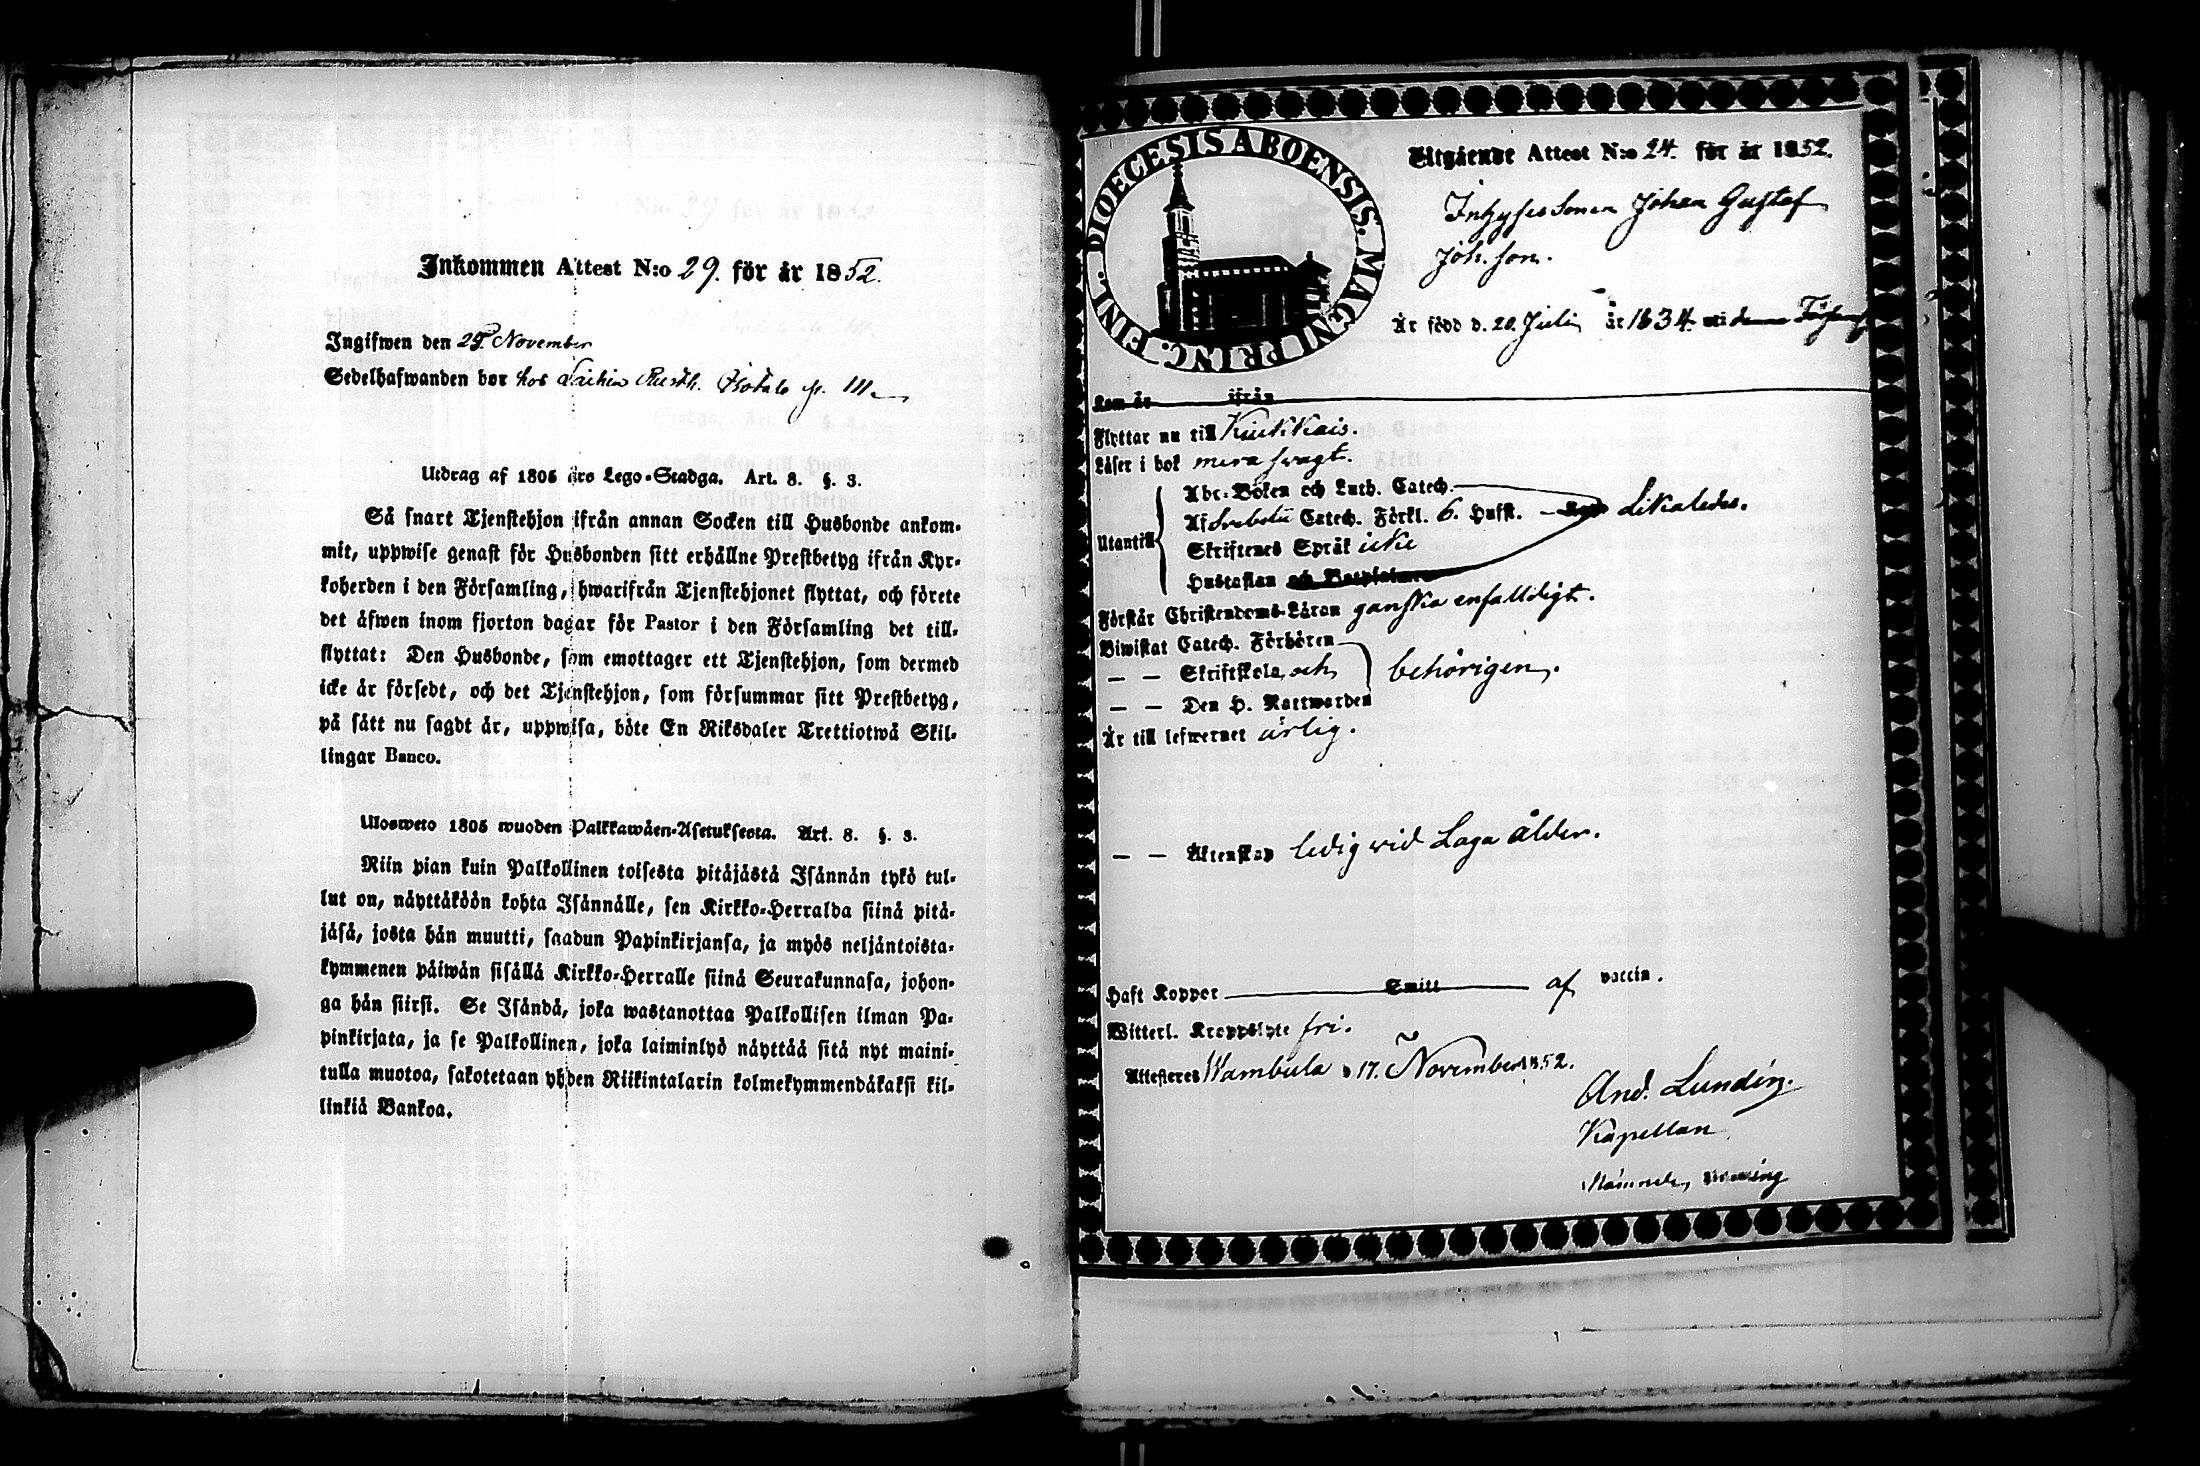 Inkommen Attest N:o 29. för år 1852.
Ingifwen den 25 November
Sedelhafwanden bor hos
Utdrag af 1805 års Lego-Stadga. Art. 8. §. 3.
Så snart Tjenstehjon ifrån annan Socken till Husbonde ankom-
mit, uppwise genast för Husbonden sitt erhållne Prestbetyg ifrån Kyr-
koherden i den Församling, hwarifrån Tjenstehjonet flyttat, och förete
det äfwen inom fjorton dagar för Pastor i den Församling det till-
flyttat: Den Husbonde, som emottager ett Tjenstehjon, som dermed
icke är försedt, och det Tjenstehjon, som försummar sitt Prestbetyg,
på sätt nu sagdt är, uppwisa, böte En Riksdaler Trettiotwå Skil-
lingar Banco.
Ulosweto 1805 wuoden Palkkawäen-Asetuksesta. Art. 8. §. 3.
Niin pian kuin Palkollinen toisesta pitäjästä Isännän tykö tul-
lut on, näyttäköön kohta Isännälle, sen Kirkko-Herralda siinä pitä-
jäsä, josta hän muutti, saadun Papinkirjansa, ja myös neljäntoista-
kymmenen päiwän sisällä Kirkko-Herralle siinä Seurakunnasa, johon-
ga hän siirsi. Se Isändä, joka wastanottaa Palkollisen ilman Pa-
pinkirjata, ja se Palkollinen, joka laiminlyö näyttää sitä nyt maini-
tulla muotoa, sakotetaan yhden Riikintalarin kolmekymmendäkaksi kil-
linkiä Bankoa.
DIOECESIS ABOENSIS. MAGNI PRINC. FINL.
Utgående Attest N:o 24. för år 1852.
Inhysessonen Johan Gustaf
Joh.son.
Är född d. 20. Julii år 1834.
Kom år ifrån
Flyttar nu till Kiukkais.
Läser i bok mera swagt.
Abc-Boken och Luth. Catech.
Af Svebelii Catech. Förkl. 6. Hufst. Likaledes.
Utantill
Skriftenes Språk icke
Hustaflan och Botpsalmerne
Förstår Christendoms-Läran ganska enfalldigt.
Biwistat Catech. Förhören
— — Skriftskola och behörigen.
— — Den H. Nattwarden
Är till lefwernet ärlig.
— — Äktenskap ledig vid Laga ålder.
Haft Koppor Smitt af vaccin.
Witterl. Kroppslyte fri.
Attesteres Wambula d 17. November 1852.
And. Lundén.
Kapellan